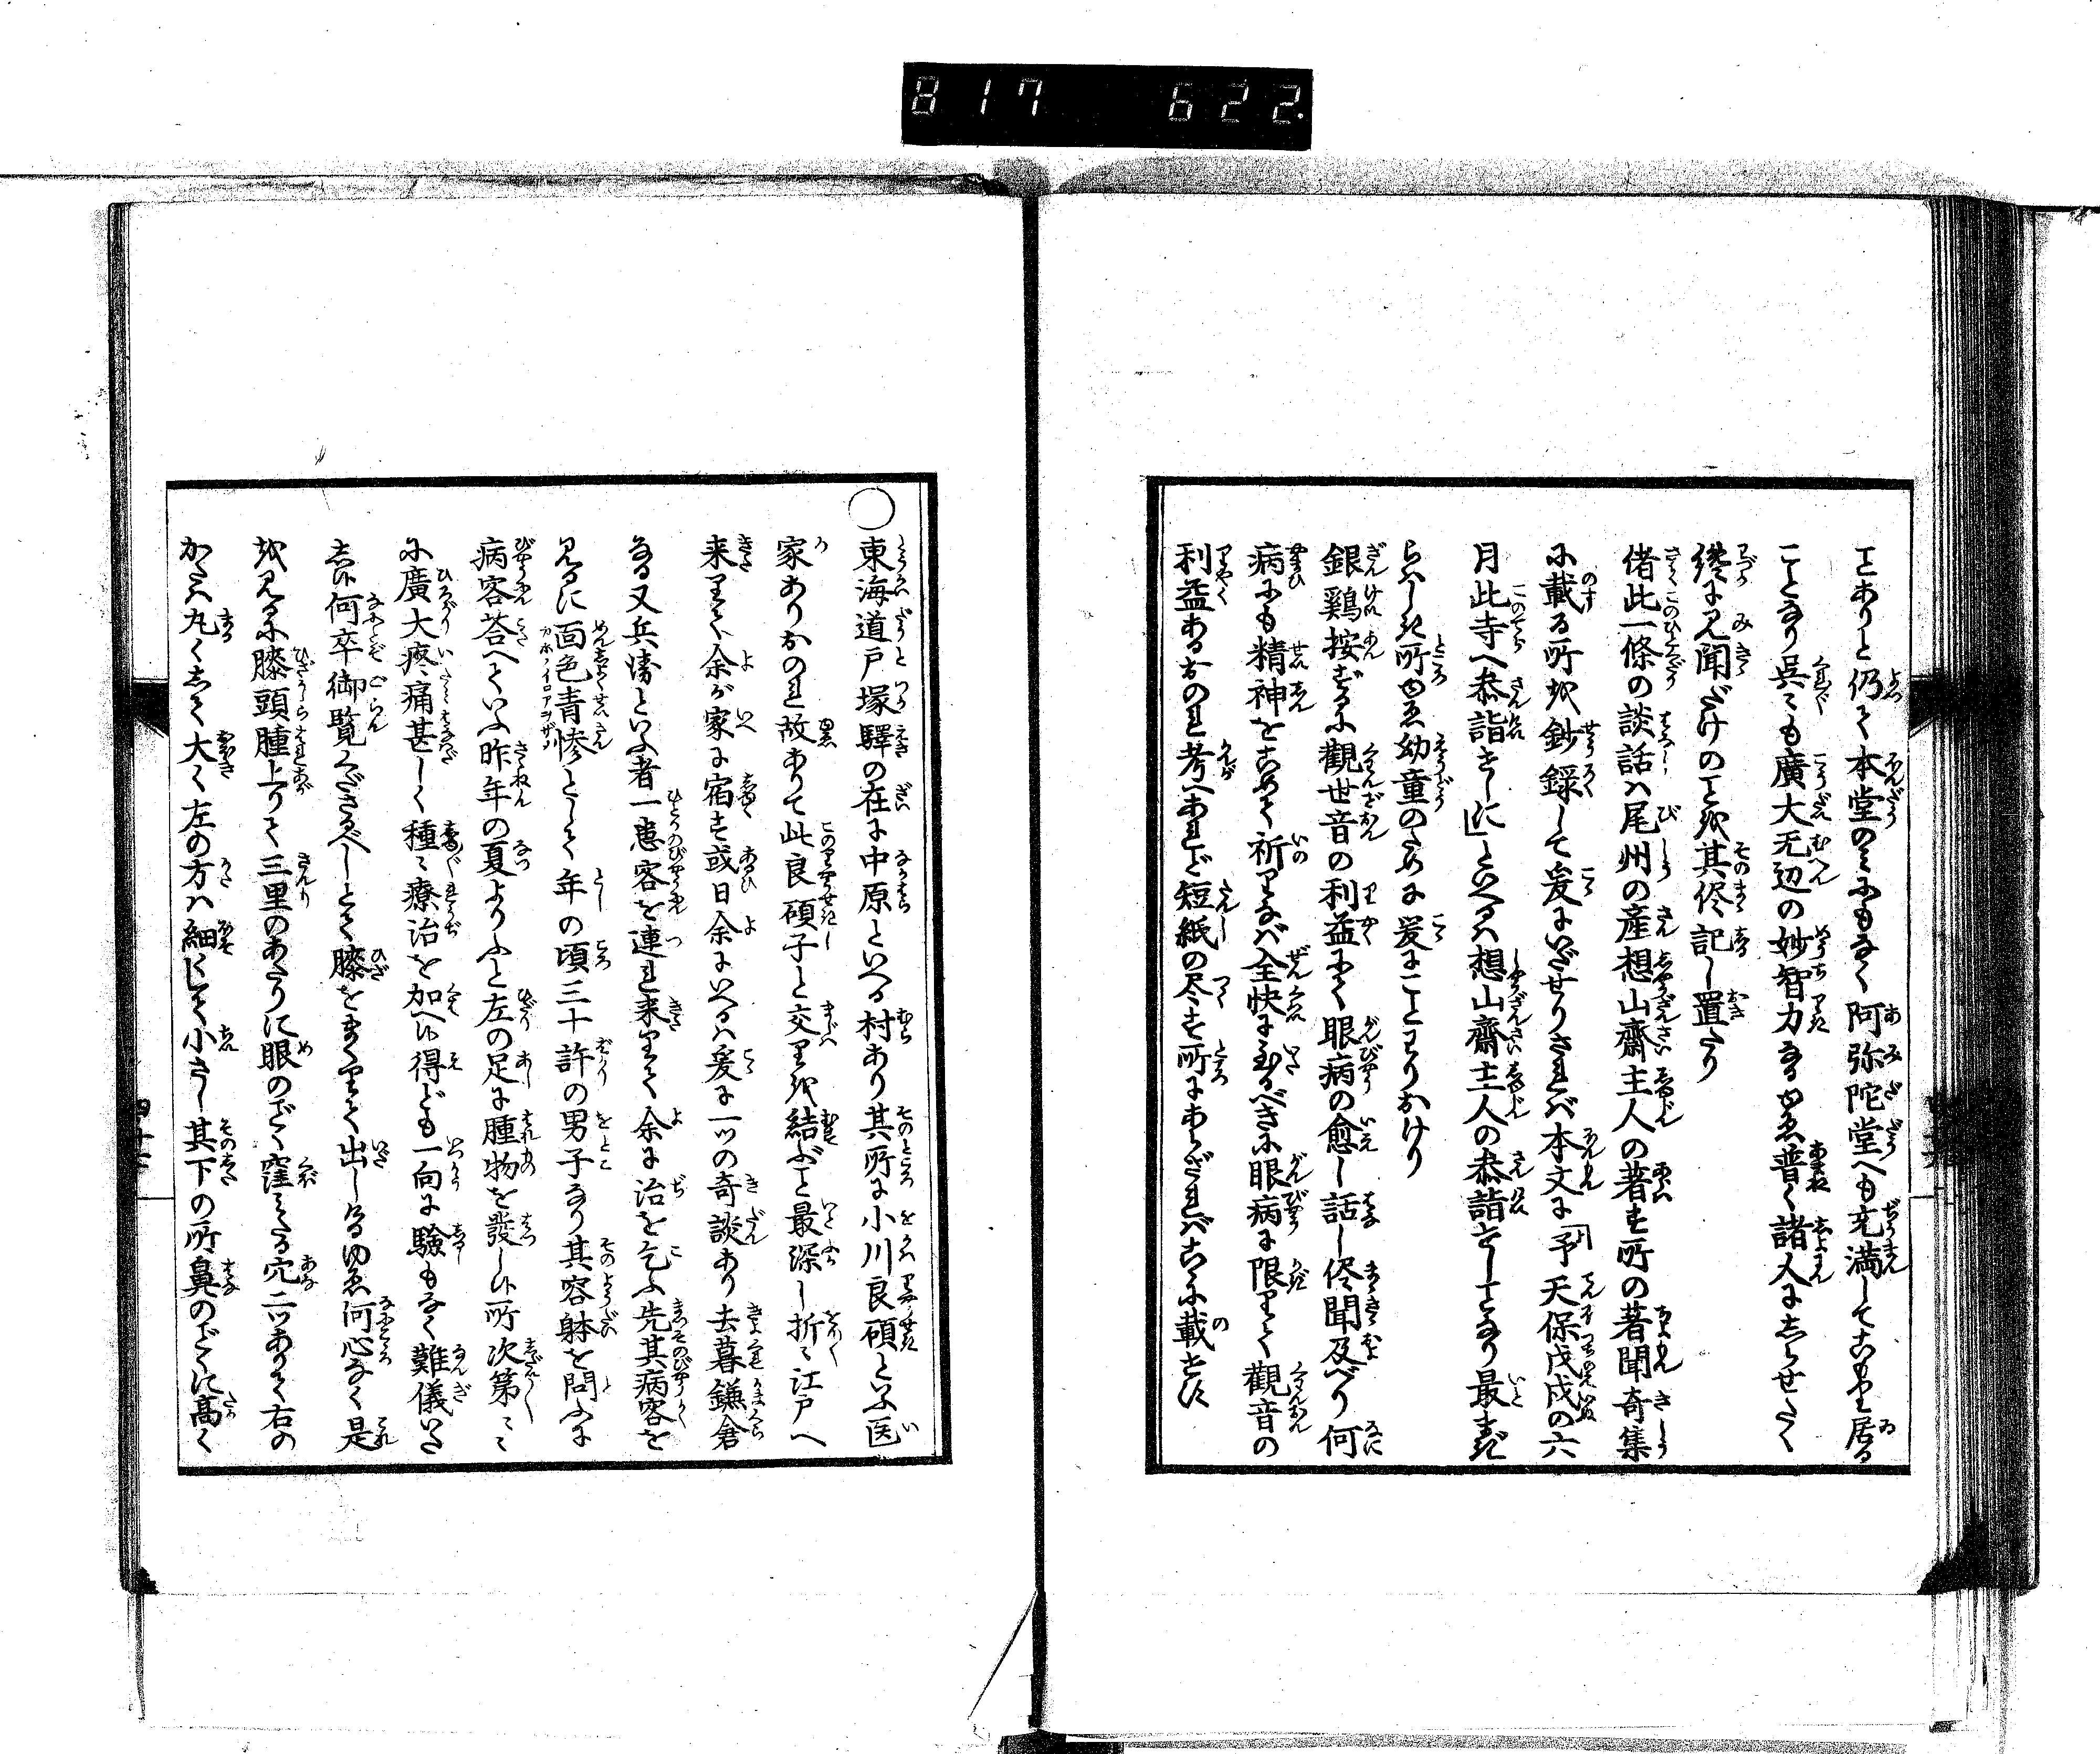 817 622
ことありと仍て本堂のみにもなく阿弥陀堂へも充満してこもり居る
ことなり呉々も廣大无辺の妙智力なるゆゑ普く諸人にしらせたく
纔に見聞だけのことを其侭記し置たり
偖此一條の談話ハ尾州の産想山齋主人の著す所の著聞奇集
に載る所を鈔録して爰にいだせりされバ本文に「予天保戊戌の六
月此寺へ参詣せしに」といへるハ想山齋主人の参詣せしことなり最まぎ
らハしき所ゆゑ幼童のために爰にことわりおけり
銀鶏按ずるに觀世音の利益にて眼病の愈し話し侭聞及べり何
病にも精神をこめて祈りなバ全快に至るべきに眼病に限りて觀音の
利益あるおのれ考へあれど短紙の尽す所にあらざれバこゝに載せず
○東海道戸塚驛の在に中原といへる村あり其所に小川良碩といふ医
家ありおのれ故ありて此良碩子と交りを結ぶこと最深し折々江戸へ
来りて余が家に宿す或日余にいへるハ爰に一ツの奇談あり去暮鎌倉
なる又兵衛といふ者一患客を連れ来りて余に治を乞ふ先其病客を
見るに面色青惨として年の頃三十許の男子なり其容躰を問ふに
病客荅へていふ昨年の夏よりふと左の足に腫物を發し候所次第々々
に廣大疼痛甚しく種々療治を加へ候得ども一向に驗もなく難儀いた
し候何卒御覧くださるべしとて膝をまくりて出しけるゆゑ何心なく是
を見るに膝頭腫上りて三里のあたりに眼のごとく窪みたる穴二ツありて右の
かたハ丸くして大く左の方ハ細くして小さし其下の所鼻のごとくに高く